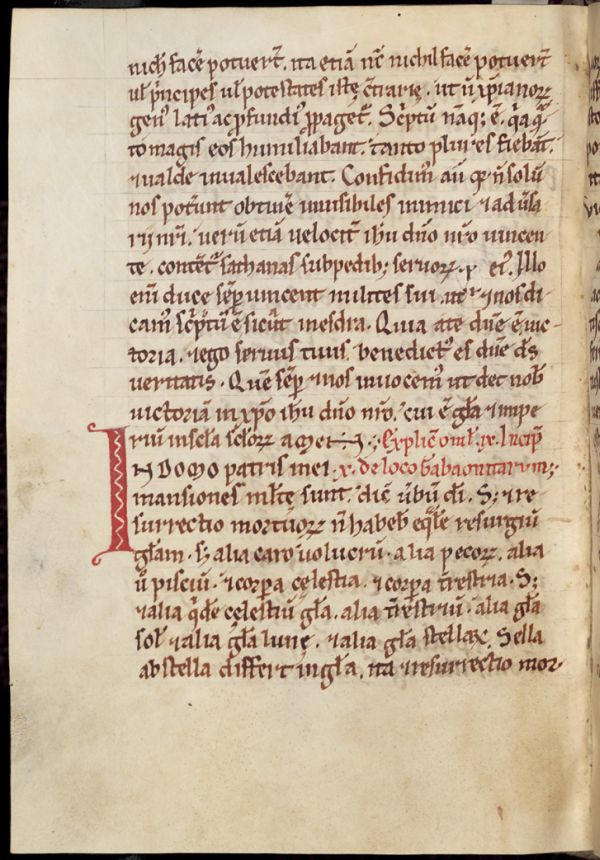 nich facē potuer̄t. ita etiā nc̄ nichil facē potuer̄t
ul̓ p̄ncipes ul̓ potestates istę c̄trarię. ut ū xp̄ianoꝝ
gen᾽ lati᾽ ac ꝓfundi᾽ ꝓpaget᾽. Sc̓ptū nāq; ē. q̓a qͣn
to magis eos humiliabant. tanto plures fiebāt.
⁊ ualde inualescebant. Confidim᾽ aū qꝫ n̄ solū
nos pot̄unt obtinē inuisibiles inimici ⁊ adūsa
rii nr̄i. uerū etiā velocit̄ ih̄u dn̄o nr̄o uincen
te. contēt᾽ sathanas sub pedib; seruoꝝ ei᾽. Illo
enī duce sēp uincent milites sui. ⁊ nos di
cam᾽ sc̓ptū ē sicūt in esdra. Quia a te dn̄e ē uic
toria. ⁊ ego seruus tuus. benedict᾽ es dn̄e ds̄
ueritatis. Quē sēp ⁊ nos inuocem᾽ ut det nob̄
uictoriā in xp̄o ih̄u dn̄o nr̄o. cui ē gl̄a ⁊ impe
riū in scl̄a scl̄oꝝ amen. Explic̄ oml̄. ix. Incip̄
IN DOMO patris mei .x. de loco gabaonitarum;
mansiones ml̄tę sunt. dic̄ ūbū dī. S; ⁊ re
surrectio mortuoꝝ n̄ habeb̄ eqͣle resurgiū
gl̄am. s; alia caro uolucrū. alia pecoꝝ. alia
ū pisciū. ⁊ corpͣa cęlestia. ⁊ corpͣa t̄restria. S;
⁊ alia q̓dē cęlestiū gl̄a. alia t̄restriū. alia gl̄a
sol̄. ⁊ alia gl̄a lunę. ⁊ alia gl̄a stellaꝝ. Stella
ab stella differt in gl̄a. ita ⁊ resurrectio mor